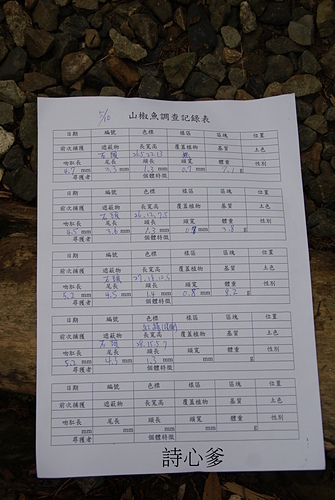 5/10 山椒魚調查記錄表
日期 編號 色標 樣區 區塊 位置
前次捕獲 遮蔽物 長寬高 覆蓋植物 基質 土色
石頭
吻肛長 尾長 頭長 頭寬 體重 性別
4.7 mm 3.3 mm 1.3 mm 0.7 mm 7.1 g
尋獲者 個體特徵
日期 編號 色標 樣區 區塊 位置
前次捕獲 遮蔽物 長寬高 覆蓋植物 基質 土色
石頭 26,12,7.5
吻肛長 尾長 頭長 頭寬 體重 性別
4.5 mm 3.6 mm 1.3 mm mm 3.8 g
尋獲者 個體特徵
日期 編號 色標 樣區 區塊 位置
前次捕獲 遮蔽物 長寬高 覆蓋植物 基質 土色
石頭
吻肛長 尾長 頭長 頭寬 體重 性別
5.2 mm 4.5 mm 1.4 mm 0.8 mm 8.2 g
尋獲者 個體特徵
日期 編號 色標 樣區 區塊 位置
前次捕獲 遮蔽物 長寬高 覆蓋植物 基質 土色
石頭
吻肛長 尾長 頭長 頭寬 體重 性別
5.2 mm 4.3 mm 1.3 mm mm g
尋獲者 個體特徵
日期 編號 色標 樣區 區塊 位置
前次捕獲 遮蔽物 長寬高 覆蓋植物 基質 土色
吻肛長 尾長 頭長 頭寬 體重 性別
mm mm mm mm g
尋獲者 個體特徵
詩心爹